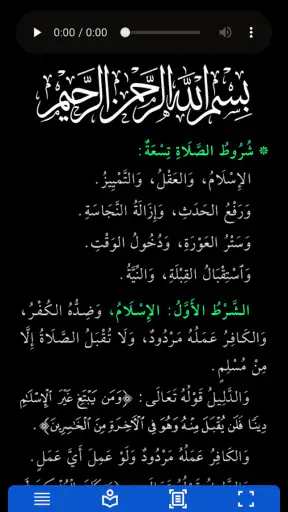 0:00 / 0:00
بِسْمِ اللَّهِ الرَّحْمَنِ الرَّحِيمِ
* شُرُوطُ الصَّلَاةِ تِسْعَةٌ:
الإِسْلَامُ، وَالعَقْلُ، وَالتَّمْيِيزُ.
وَرَفْعُ الحَدَثِ، وَإِزَالَةُ النَّجَاسَةِ.
وَسَتْرُ العَوْرَةِ، وَدُخُولُ الوَقْتِ.
وَٱسْتِقْبَالُ القِبْلَةِ، وَالنِّيَّةُ.
الشَّرْطُ الأَوَّلُ: الإِسْلَامُ، وَضِدُّهُ الكُفْرُ،
وَالكَافِرُ عَمَلُهُ مَرْدُودٌ، وَلَا تُقْبَلُ الصَّلَاةُ إِلَّا
مِنْ مُسْلِمٍ.
وَالدَّلِيلُ قَوْلُهُ تَعَالَى: ﴿وَمَن يَبْتَغِ غَيْرَ ٱلْإِسْلَٰمِ
دِينًا فَلَن يُقْبَلَ مِنْهُ وَهُوَ فِي ٱلْآخِرَةِ مِنَ ٱلْخَٰسِرِينَ﴾.
وَالكَافِرُ عَمَلُهُ مَرْدُودٌ وَلَوْ عَمِلَ أَيَّ عَمَلٍ.